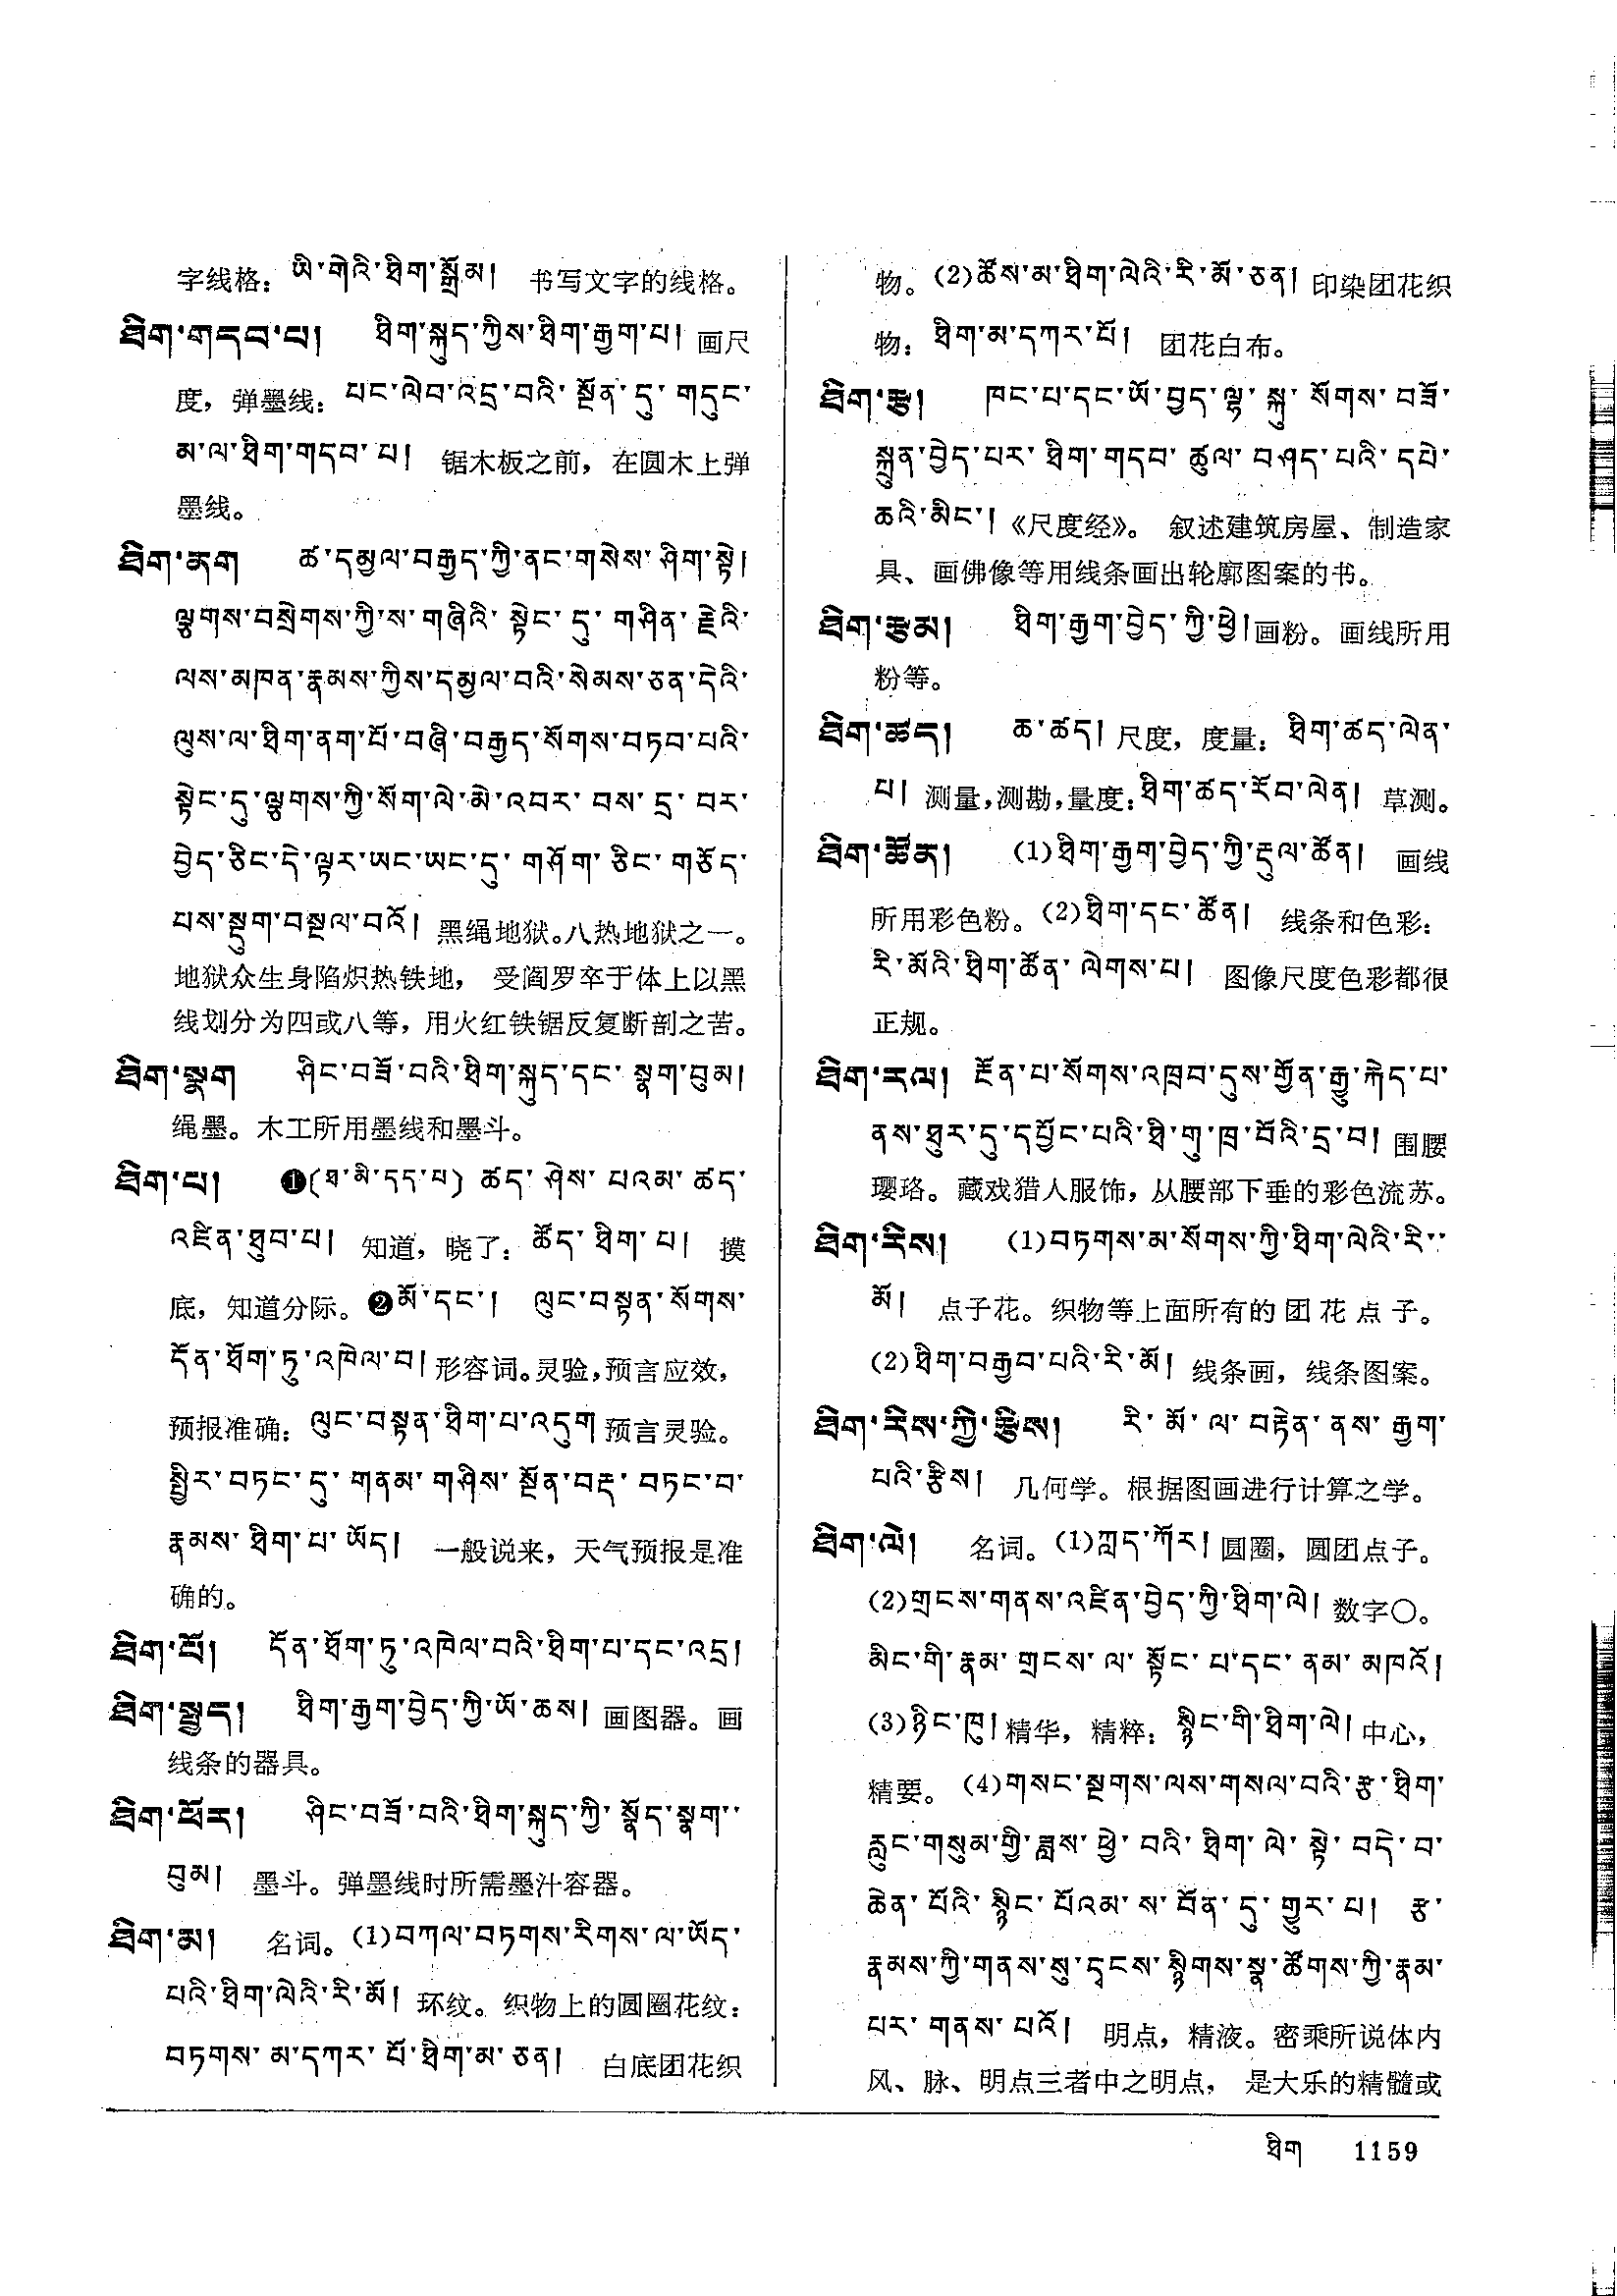 字线格：ཡི་གེའི་ཐིག་སྒྲོམ། 书写文字的线格。
ཐིག་གདབ་པ། ཐིག་སྐུད་ཀྱིས་ཐིག་རྒྱག་པ། 画尺
度，弹墨线：པང་ལེབ་འདྲ་བའི་སྔོན་དུ་གདུང་
མ་ལ་ཐིག་གདབ་པ། 锯木板之前，在圆木上弹
墨线。
ཐིག་ནག ཚ་དམྱལ་བརྒྱད་ཀྱི་ནང་གསེས་ཤིག་སྟེ།
ལྕགས་བསྲེགས་ཀྱི་ས་གཞིའི་སྟེང་དུ་གཤིན་རྗེའི་
ལས་མཁན་རྣམས་ཀྱིས་དམྱལ་བའི་སེམས་ཅན་དེའི་
ལུས་ལ་ཐིག་ནག་པོ་བཞི་བརྒྱད་སོགས་བཏབ་པའི་
སྟེང་དུ་ལྕགས་ཀྱི་སོག་ལེ་མེ་འབར་བས་དྲ་བར་
བྱེད་ཅིང་དེ་ལྟར་ཡང་ཡང་དུ་གཤོག་ཅིང་གཅོད་
པས་སྡུག་བསྔལ་བའོ། 黑绳地狱。八热地狱之一。
地狱众生身陷炽热铁地， 受阎罗卒于体上以黑
线划分为四或八等，用火红铁锯反复断剖之苦。
ཐིག་སྣག ཤིང་བཟོ་བའི་ཐིག་སྐུད་དང་སྣག་བུམ།
绳墨。木工所用墨线和墨斗。
ཐིག་པ། ❶(ཐ་མི་དད་པ) ཚད་ཤེས་པའམ་ཚད་
འཛིན་ཐུབ་པ། 知道，晓了：ཚོད་ཐིག་པ། 摸
底，知道分际。❷མོ་དང་། ལུང་བསྟན་སོགས་
དོན་ཐོག་ཏུ་འཁེལ་བ། 形容词。灵验，预言应效，
预报准确：ལུང་བསྟན་ཐིག་པ་འདུག 预言灵验。
སྤྱིར་བཏང་དུ་གནམ་གཤིས་སྔོན་བརྡ་བཏང་བ་
རྣམས་ཐིག་པ་ཡོད། 一般说来，天气预报是准
确的。
ཐིག་པོ། དོན་ཐོག་ཏུ་འཁེལ་བའི་ཐིག་པ་དང་འདྲ།
ཐིག་སྤྱད། ཐིག་རྒྱག་བྱེད་ཀྱི་ཡོ་ཆས། 画图器。画
线条的器具。
ཐིག་ཕོར། ཤིང་བཟོ་བའི་ཐིག་སྐུད་ཀྱི་སྣོད་སྣག་
བུམ། 墨斗。弹墨线时所需墨汁容器。
ཐིག་མ། 名词。(1)བཀལ་བཏགས་རིགས་ལ་ཡོད་
པའི་ཐིག་ལེའི་རི་མོ། 环纹。织物上的圆圈花纹：
བཏགས་མ་དཀར་པོ་ཐིག་མ་ཅན། 白底团花织
物。(2)ཚོས་མ་ཐིག་ལེའི་རི་མོ་ཅན། 印染团花织
物：ཐིག་མ་དཀར་པོ། 团花白布。
ཐིག་རྩ། ཁང་པ་དང་ཡོ་བྱད་ལྷ་སྐུ་སོགས་བཟོ་
སྐྲུན་བྱེད་པར་ཐིག་གདབ་ཚུལ་བཤད་པའི་དཔེ་
ཆའི་མིང་།《尺度经》。 叙述建筑房屋、制造家
具、画佛像等用线条画出轮廓图案的书。
ཐིག་རྩམ། ཐིག་རྒྱག་བྱེད་ཀྱི་ཕྱེ། 画粉。画线所用
粉等。
ཐིག་ཚད། ཆ་ཚད། 尺度，度量：ཐིག་ཚད་ལེན་
པ། 测量，测勘，量度：ཐིག་ཚད་རོབ་ལེན། 草测。
ཐིག་ཚོན། (1)ཐིག་རྒྱག་བྱེད་ཀྱི་རྡུལ་ཚོན། 画线
所用彩色粉。(2)ཐིག་དང་ཚོན། 线条和色彩：
རི་མོའི་ཐིག་ཚོན་ལེགས་པ། 图像尺度色彩都很
正规。
ཐིག་རལ། རྔོན་པ་སོགས་འཁྲབ་དུས་གྱོན་རྒྱུ་རྐེད་པ་
ནས་ཐུར་དུ་དཔྱོང་པའི་ཐི་གུ་ཁྲ་བོའི་དྲ་བ། 围腰
璎珞。藏戏猎人服饰，从腰部下垂的彩色流苏。
ཐིག་རིས། (1)བཏགས་མ་སོགས་ཀྱི་ཐིག་ལེའི་རི་
མོ། 点子花。织物等上面所有的团花点子。
(2)ཐིག་བརྒྱབ་པའི་རི་མོ། 线条画，线条图案。
ཐིག་རིས་ཀྱི་རྩིས། རི་མོ་ལ་བརྟེན་ནས་རྒྱག་
པའི་རྩིས། 几何学。根据图画进行计算之学。
ཐིག་ལེ། 名词。(1)ཀླད་ཀོར། 圆圈，圆团点子。
(2)གྲངས་གནས་འཛིན་བྱེད་ཀྱི་ཐིག་ལེ། 数字〇。
མིང་གི་རྣམ་གྲངས་ལ་སྟོང་པ་དང་ནམ་མཁའོ།
(3)ཉིང་ཁུ། 精华，精粹：སྙིང་གི་ཐིག་ལེ། 中心，
精要。(4)གསང་སྔགས་ལས་གསལ་བའི་རྩ་ཐིག་
རླུང་གསུམ་གྱི་ཟླས་ཕྱེ་བའི་ཐིག་ལེ་སྟེ་བདེ་བ་
ཆེན་པོའི་སྙིང་པོའམ་ས་བོན་དུ་གྱུར་པ། རྩ་
རྣམས་ཀྱི་གནས་སུ་དྭངས་སྙིགས་སྣ་ཚོགས་ཀྱི་རྣམ་
པར་གནས་པའོ། 明点，精液。密乘所说体内
风、脉、明点三者中之明点， 是大乐的精髓或
ཐིག 1159